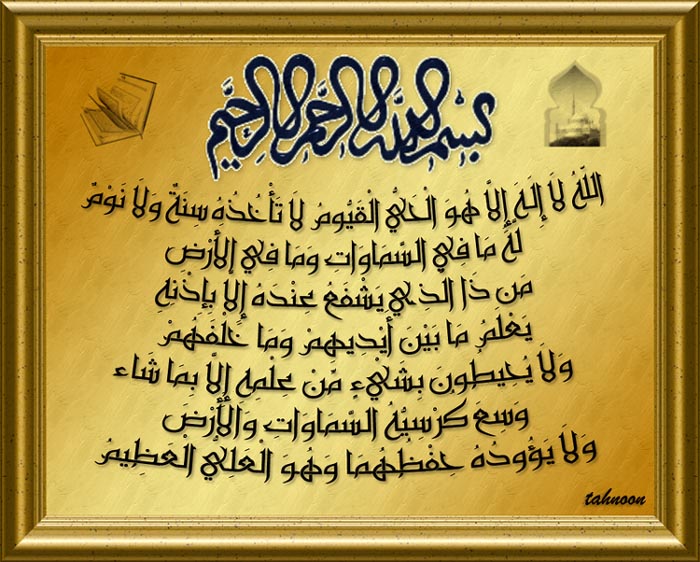 بسم الله الرحمن الرحيم
اللّهُ لاَ إِلَهَ إِلاَّ هُوَ الْحَيُّ الْقَيُّومُ لاَ تَأْخُذُهُ سِنَةٌ وَلاَ نَوْمٌ
لَّهُ مَا فِي السَّمَاوَاتِ وَمَا فِي الأَرْضِ
مَن ذَا الَّذِي يَشْفَعُ عِنْدَهُ إِلاَّ بِإِذْنِهِ
يَعْلَمُ مَا بَيْنَ أَيْدِيهِمْ وَمَا خَلْفَهُمْ
وَلاَ يُحِيطُونَ بِشَيْءٍ مِّنْ عِلْمِهِ إِلاَّ بِمَا شَاء
وَسِعَ كُرْسِيُّهُ السَّمَاوَاتِ وَالأَرْضَ
وَلاَ يَؤُودُهُ حِفْظُهُمَا وَهُوَ الْعَلِيُّ الْعَظِيمُ
tahnoon